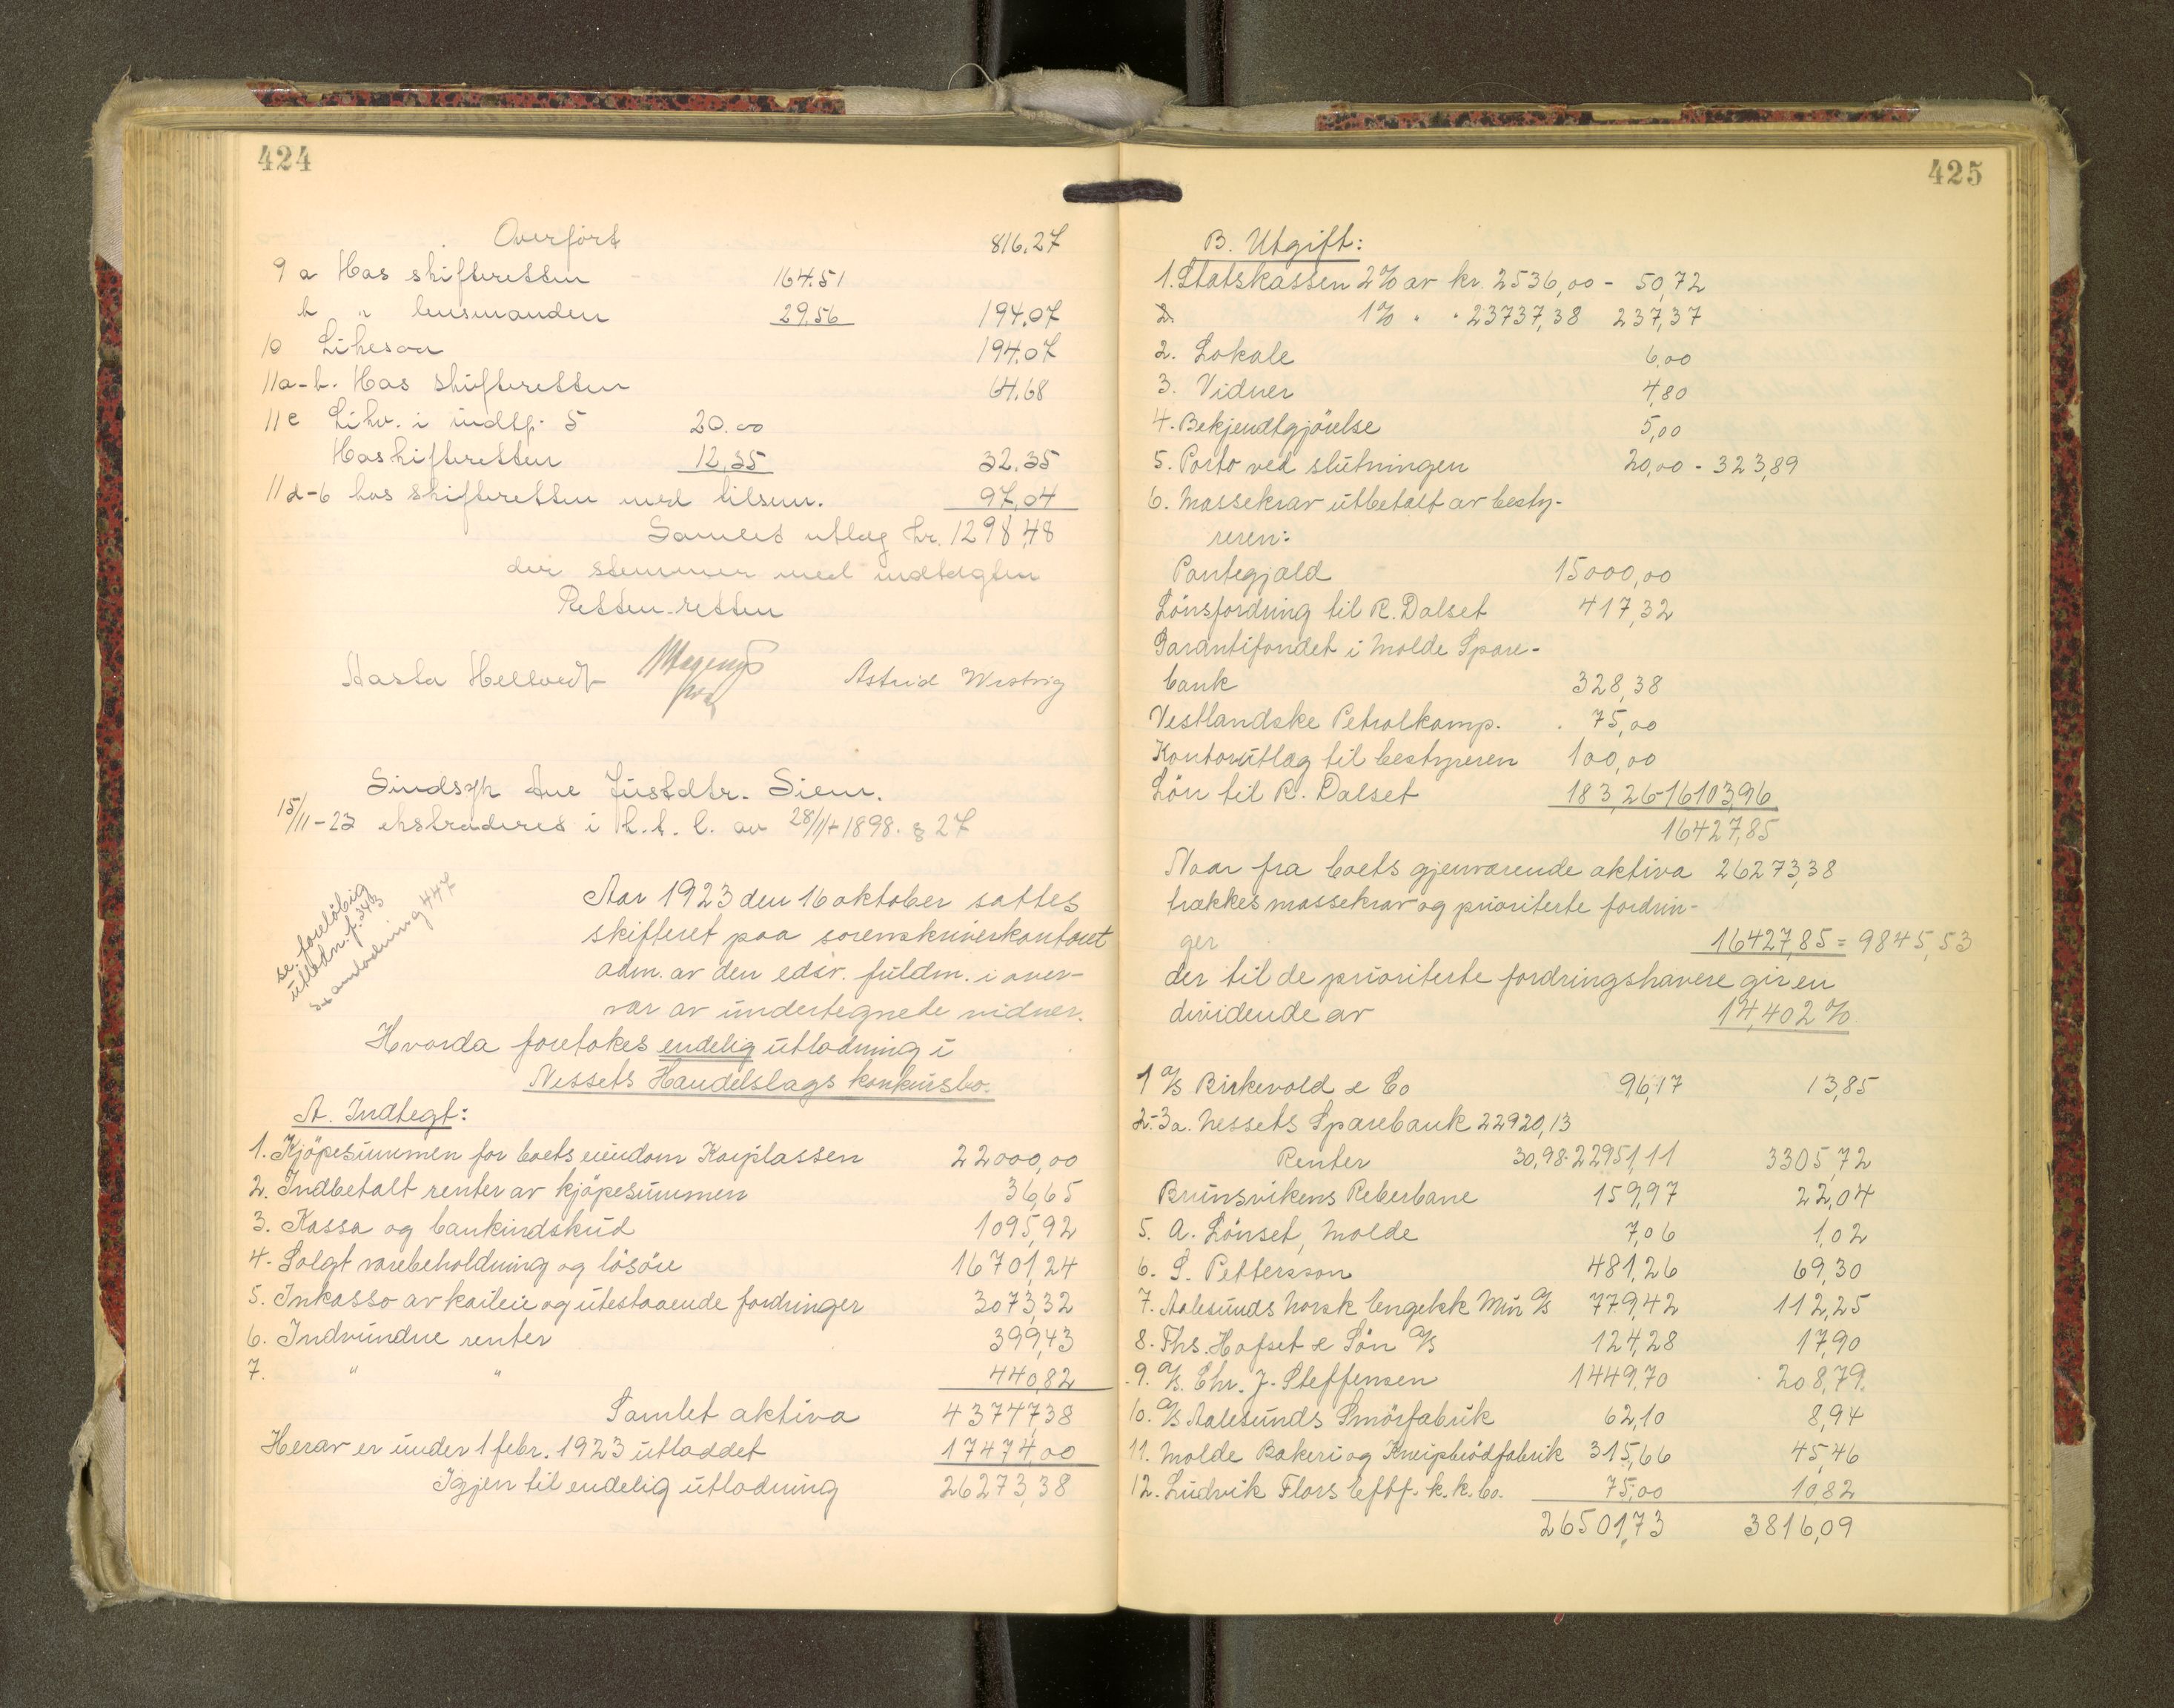 424
Overført 816.27
9 a Hos skifteretten 164.51
b " lensmanden 29.56 194.07
10 Likesaa 194.07
11a-b. Hos skifteretten 64.68
11c Likv. i indtf. 5 20.00
Hos skifteretten 12.35 32.35
11d-6 hos skifteretten med tilsum. 97.04
Samlet utlæg kr. 1298,48
der stemmer med indtægten
Retten - retten
Aasta Hellvedt Astrid Westvig
Sindsyk Ane Justdtr. Siem.
15/11-23 ekstraderes i h.t. l. av 28/11 1898. § 27
se foreløbig
utlodn. f. 343
se omlodning 447
Aar 1923 den 16 oktober sattes
skifteret paa sorenskriverkontoret
adm. av den edsv. fuldm. i over-
vær av undertegnede vidner.
Hvorda foretokes endelig utlodning i
Nessets Handelslags konkursbo.
A. Indtegt:
1. Kjöpesummen for boets eiendom Korplassen 22000,00
2. Indbetalt renter av kjöpesummen 36,65
3. Kassa og bankindskud 1095,92
4. Solgt varebeholdning og lösöre 16701,24
5. Inkasso av kaileie og utestaaende fordringer 3073,32
6. Indvundne renter 399,43
7. " " 440,82
Samlet aktiva 43747,38
Herav er under 1 febr. 1923 utloddet 17474,00
Igjen til endelig utlodning 26273,38
425
B. Utgift:
1. Statskassen 2% av kr. 2536,00 - 50,72
1% " " 23737,38 237,37
2. Lokale 6,00
3. Vidner 4,80
4. Bekjendtgjörelse 5,00
5. Porto ved slutningen 20,00 - 323,89
6. Massekrav utbetalt av besty-
reren:
Pantegjæld 15000,00
Lönsfordring til R. Dalset 417,32
Garantifondet i Molde Spare-
bank 328,38
Vestlandske Petrolkomp. 75,00
Kontorutlæg til bestyreren 100,00
Lön til R. Dalset 183,26 - 16103,96
16427,85
Naar fra boets gjenværende aktiva 26273,38
trækkes massekrav og prioriterte fordrin-
ger 16427,85 = 9845,53
der til de prioriterte fordringshavere gir en
dividende av 14,402%
1 A/S Birkevold & Co 96,17 13,85
2-3a. Nessets Sparebank 22920,13
Renter 30,98 - 22951,11 3305,72
Brunsvikens Reberbane 159,97 22,04
5. A. Lönset, Molde 7,06 1,02
6. S. Pettersson 481,26 69,30
7. Aalesunds Norsk Engelsk Min A/S 779,42 112,25
8. Ths. Hofset & Sön A/S 124,28 17,90
9. A/S. Chr. J. Steffensen 1449,70 208,79
10. A/S Aalesunds Smörfabrik 62,10 8,94
11. Molde Bakeri og Kneipbrödfabrik 315,66 45,46
12. Ludvik Flors Eftf. k.k.bo. 75,00 10,82
26501,73 3816,09